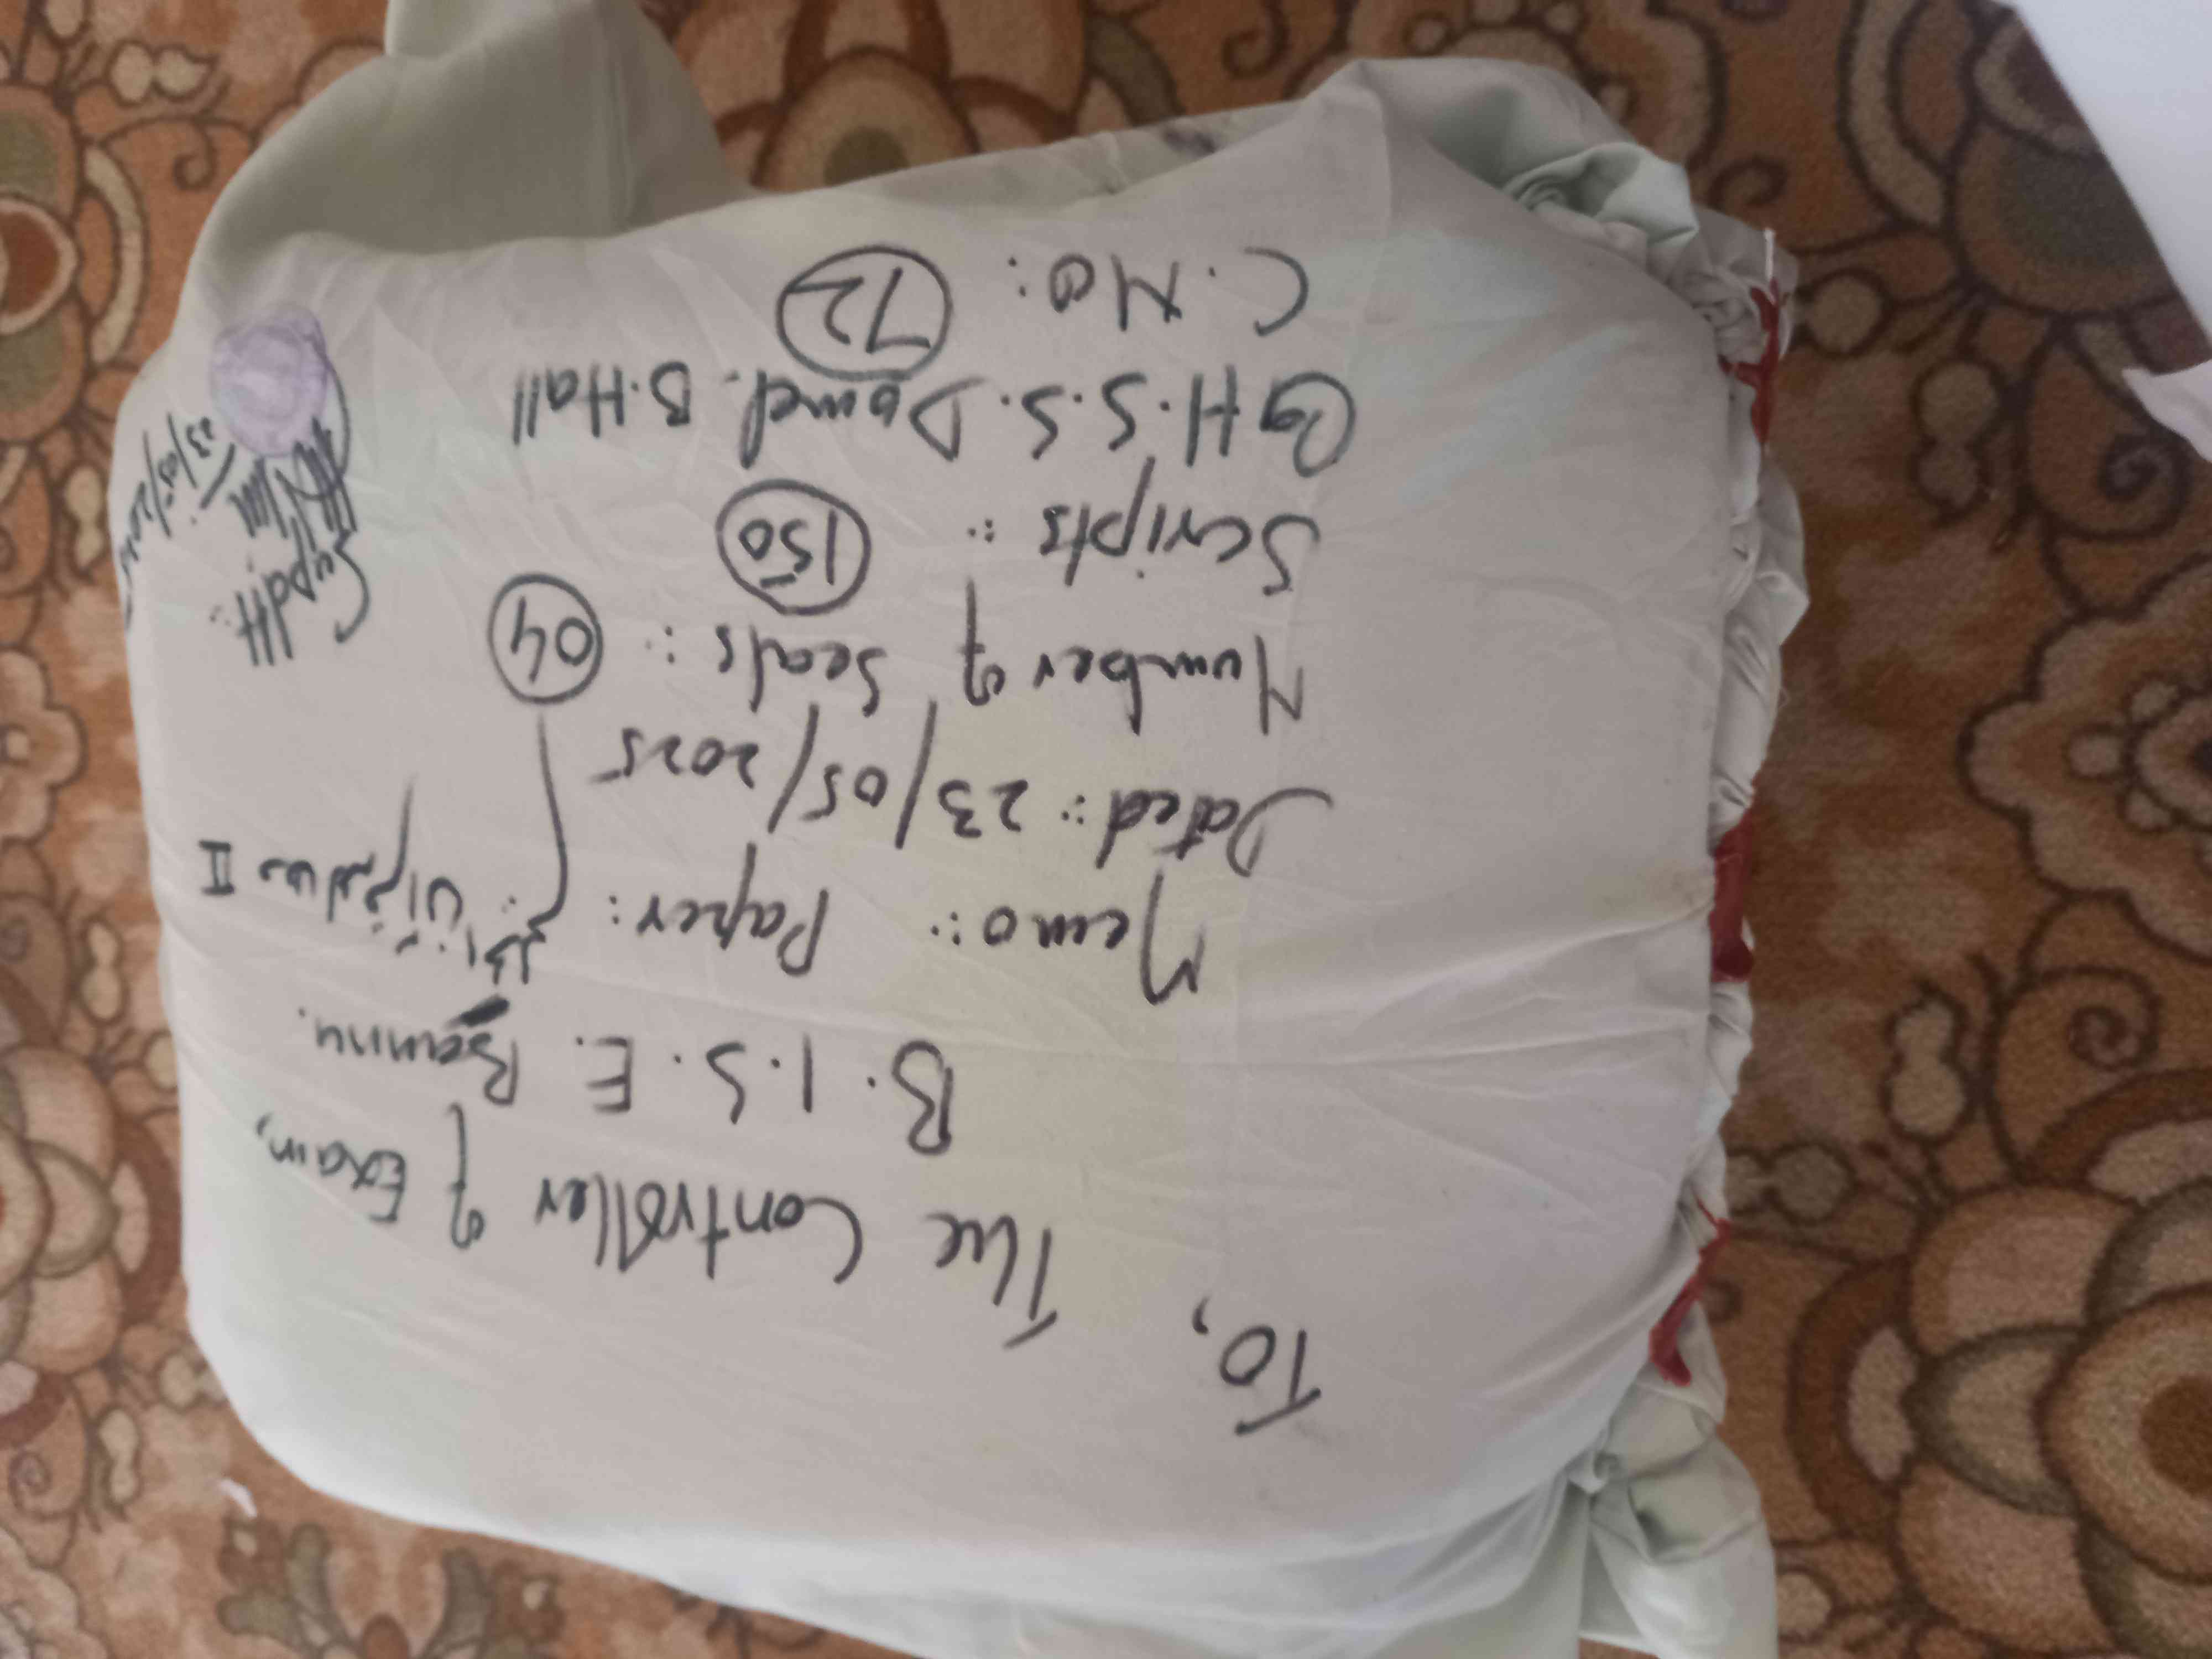 To,
The Controller of Exam,
B.I.S.E. Bannu.
Memo:. Paper:
II
Dated:. 23/05/2025
Number of Seals:. 04
Scripts:. 150
GH.S.S. Domel. B.Hall
C.No: 72
Supdtt:.
23/05/2025